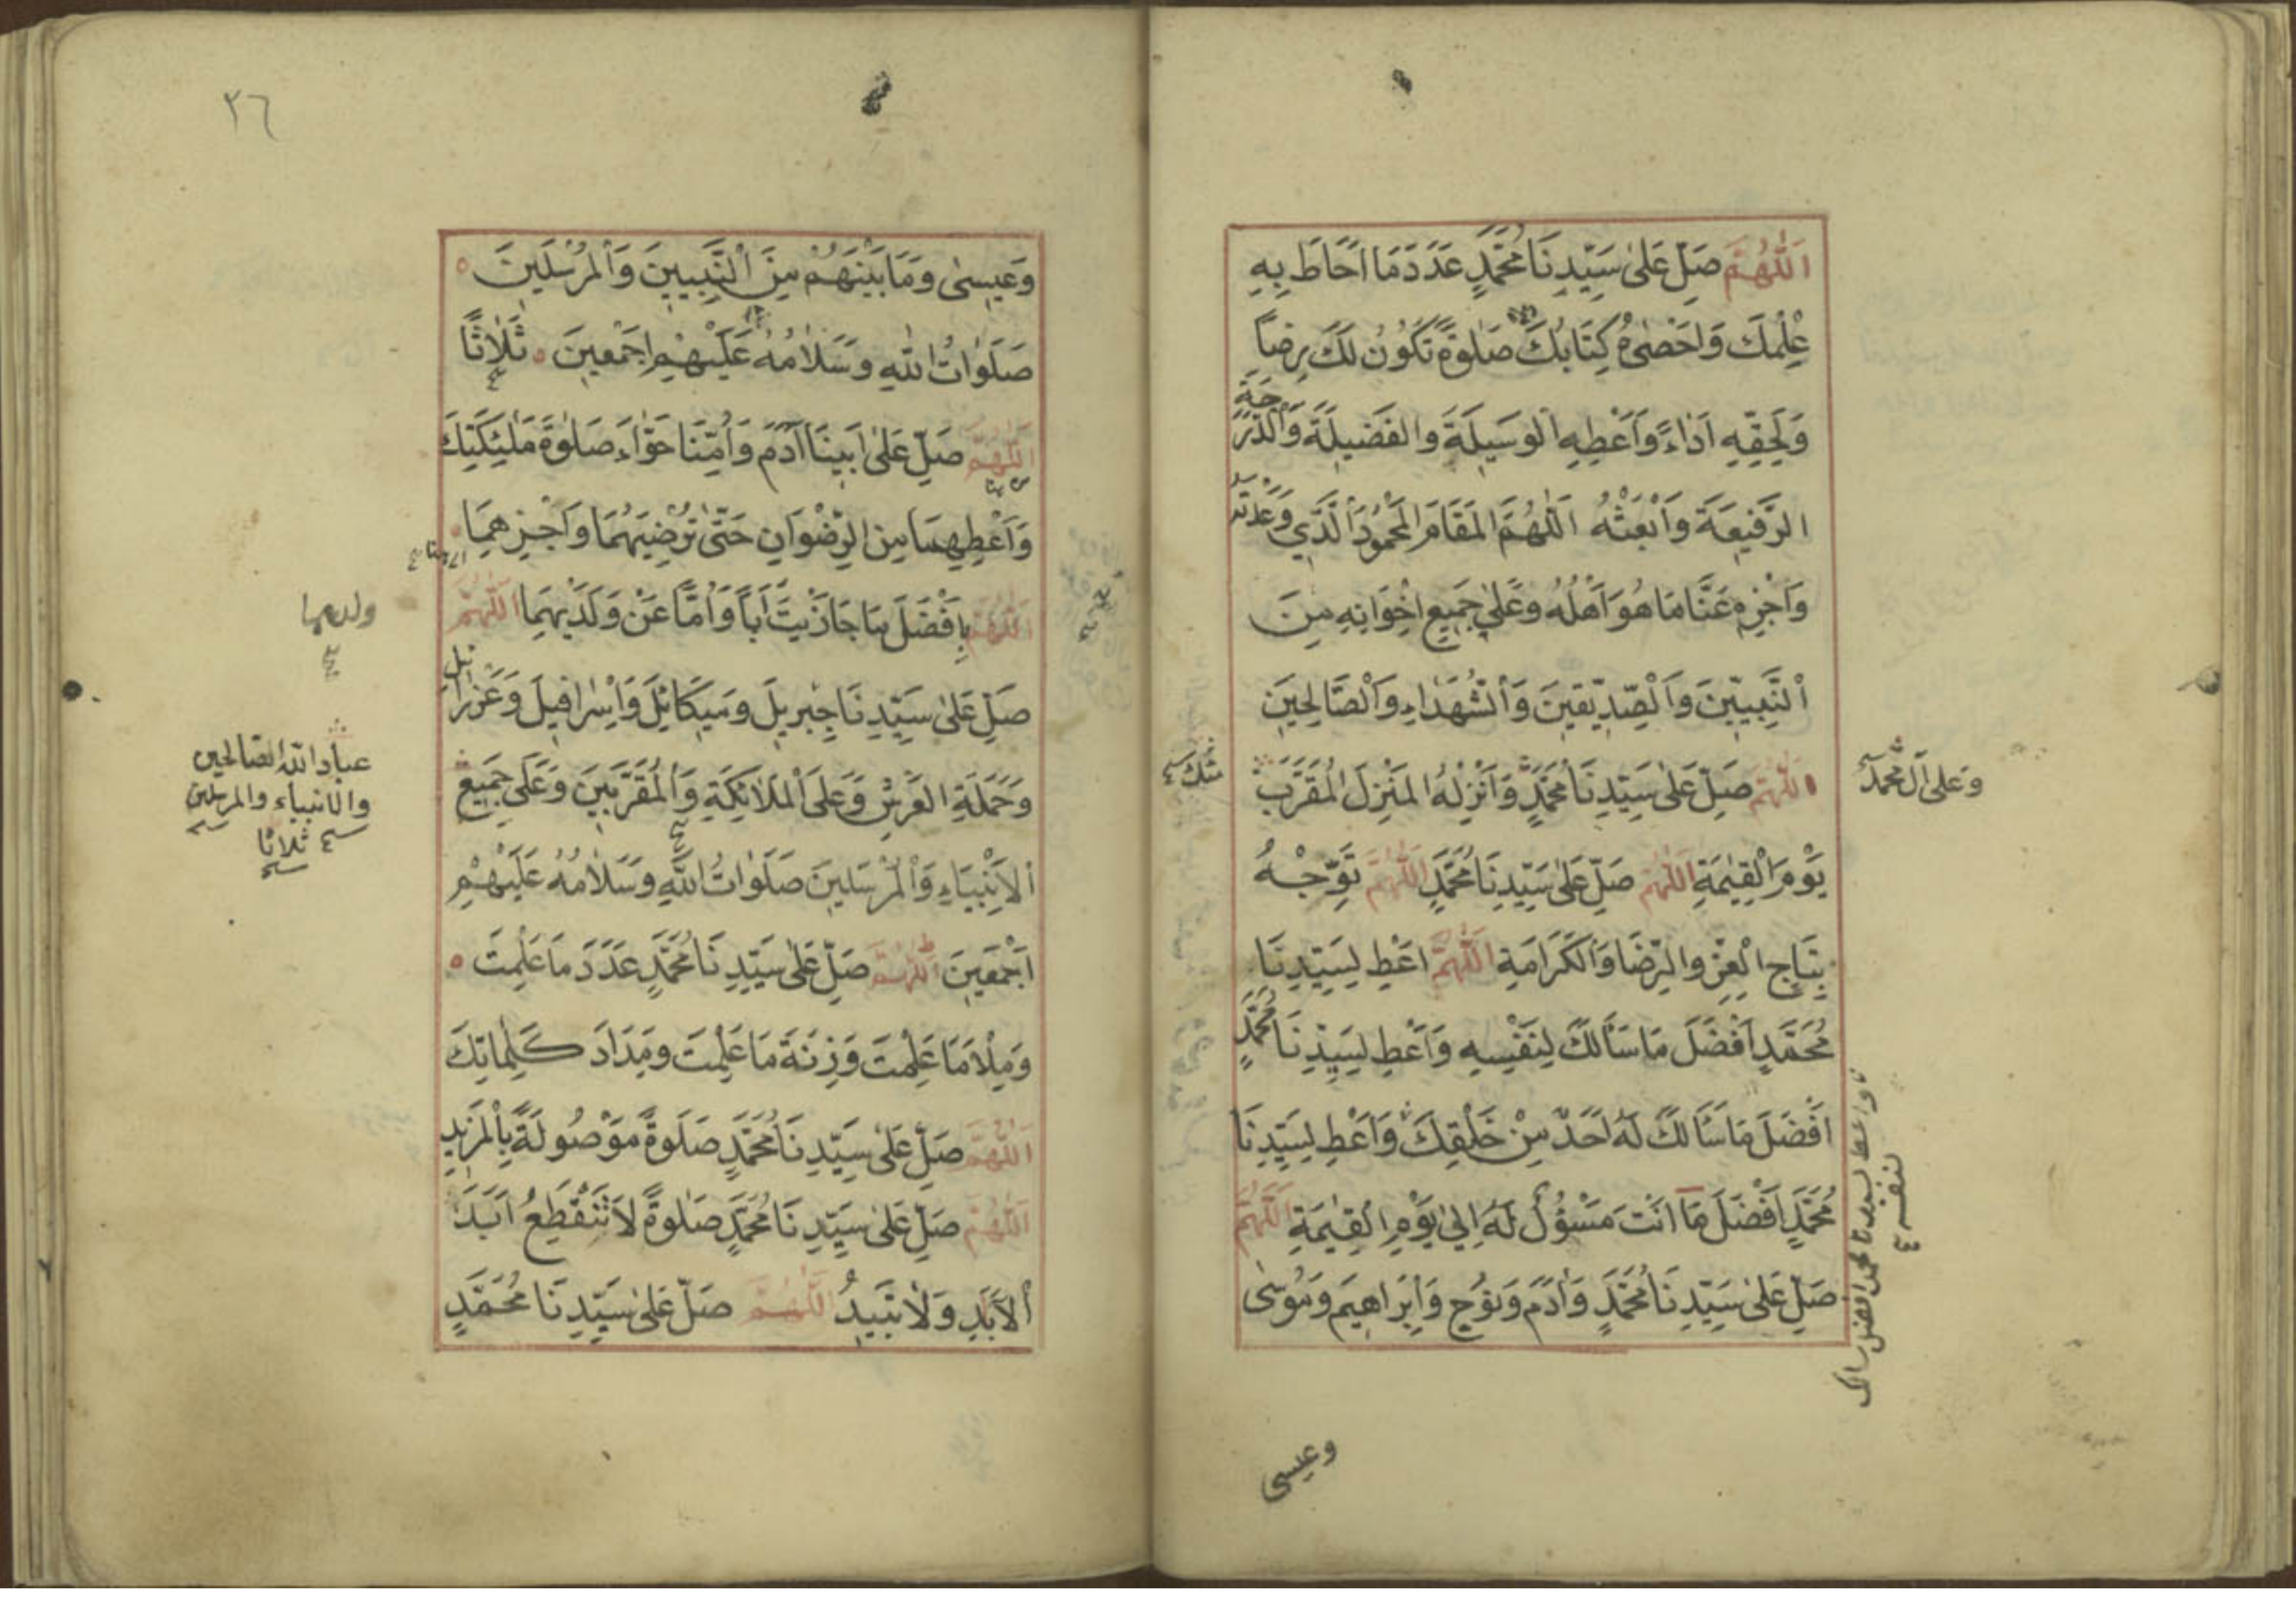 اَللّٰهُمَّ صَلِّ عَلٰى سَيِّدِنَا مُحَمَّدٍ عَدَدَ مَا اَحَاطَ بِهِ
عِلْمُكَ وَاَحْصٰىهُ كِتَابُكَ صَلٰوةً تَكُوْنُ لَكَ رِضًا
وَلِحَقِّهِ اَدَاءً وَاَعْطِهِ الْوَسِيلَةَ وَالْفَضِيلَةَ وَالدَّرَجَةَ
الرَّفِيعَةَ وَابْعَثْهُ اَللّٰهُمَّ الْمَقَامَ الْمَحْمُودَ الَّذِي وَعَدْتَهُ
وَاَجْزِهِ عَنَّا مَا هُوَ اَهْلُهُ وَعَلٰى جَمِيعِ اِخْوَانِهِ مِنَ
النَّبِيِّينَ وَالصِّدِّيقِينَ وَالشُّهَدَاءِ وَالصَّالِحِينَ
اَللّٰهُمَّ صَلِّ عَلٰى سَيِّدِنَا مُحَمَّدٍ وَاَنْزِلْهُ الْمَنْزِلَ الْمُقَرَّبَ
وَعَلٰى آلِ مُحَمَّدٍ
مِنْكَ
يَوْمَ الْقِيٰمَةِ اَللّٰهُمَّ صَلِّ عَلٰى سَيِّدِنَا مُحَمَّدٍ اَللّٰهُمَّ تَوِّجْهُ
بِتَاجِ الْعِزِّ وَالرِّضَا وَالْكَرَامَةِ اَللّٰهُمَّ اَعْطِ لِسَيِّدِنَا
مُحَمَّدٍ اَفْضَلَ مَا سَاَلَكَ لِنَفْسِهِ وَاَعْطِ لِسَيِّدِنَا مُحَمَّدٍ
اَفْضَلَ مَا سَاَلَكَ لَهُ اَحَدٌ مِنْ خَلْقِكَ وَاَعْطِ لِسَيِّدِنَا
مُحَمَّدٍ اَفْضَلَ مَا اَنْتَ مَسْؤُلٌ لَهُ اِلٰى يَوْمِ الْقِيٰمَةِ اَللّٰهُمَّ
صَلِّ عَلٰى سَيِّدِنَا مُحَمَّدٍ وَاٰدَمَ وَنُوْحٍ وَاِبْرَاهِيمَ وَمُوسٰى
واعط لسيدنا محمد افضل ما سالك
لنفسه
وعيسى
٣٦
وَعِيسٰى وَمَا بَيْنَهُمْ مِنَ النَّبِيِّينَ وَالْمُرْسَلِينَ
صَلَوَاتُ اللّٰهِ وَسَلَامُهُ عَلَيْهِمْ اَجْمَعِينَ ثَلَاثًا
اَللّٰهُمَّ صَلِّ عَلٰى اَبِينَا اٰدَمَ وَاُمِّنَا حَوَّاءَ صَلٰوةَ مَلٰئِكَتِكَ
وَاَعْطِهِمَا مِنَ الرِّضْوَانِ حَتّٰى تُرْضِيَهُمَا وَاجْزِهِمَا
اَللّٰهُمَّ اَفْضَلَ مَا جَازَيْتَ اَبًا وَاُمًّا عَنْ وَلَدَيْهِمَا اَللّٰهُمَّ
ولديهما
صَلِّ عَلٰى سَيِّدِنَا جِبْرِيلَ وَمِيكَائِلَ وَاِسْرَافِيلَ وَعَزْرَائِيلَ
وَحَمَلَةِ الْعَرْشِ وَعَلَى الْمَلَائِكَةِ وَالْمُقَرَّبِينَ وَعَلٰى جَمِيعِ
عباد الله الصالحين
والانبياء والمرسلين
ثلاثا
الْاَنْبِيَاءِ وَالْمُرْسَلِينَ صَلَوَاتُ اللّٰهِ وَسَلَامُهُ عَلَيْهِمْ
اَجْمَعِينَ اَللّٰهُمَّ صَلِّ عَلٰى سَيِّدِنَا مُحَمَّدٍ عَدَدَ مَا عَلِمْتَ
وَمِلْاَ مَا عَلِمْتَ وَزِنَةَ مَا عَلِمْتَ وَمِدَادَ كَلِمَاتِكَ
اَللّٰهُمَّ صَلِّ عَلٰى سَيِّدِنَا مُحَمَّدٍ صَلَوةً مَوْصُولَةً بِالْمَزِيدِ
اَللّٰهُمَّ صَلِّ عَلٰى سَيِّدِنَا مُحَمَّدٍ صَلٰوةً لَا تَنْقَطِعُ اَبَدَ
الْاَبَدِ وَلَا تَبِيدُ اَللّٰهُمَّ صَلِّ عَلٰى سَيِّدِنَا مُحَمَّدٍ